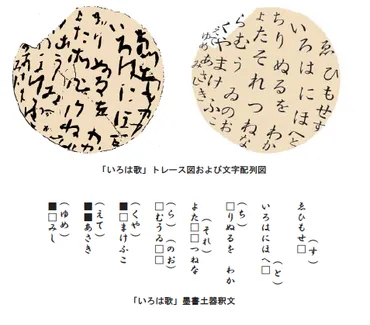 ゑひもせす
いろはにほへと
ちりぬるを わか
よたそれつねな
らむう ゐのお
くやまけふこ
えてあさき
ゆめみし
「いろは歌」トレース図および文字配列図
(す)
ゑひもせ□
(と)
いろはにほへ□
(ち)
□りぬるを わか
(それ)
よた□□つねな
(ら)(のお)
□むうゐ□□
(くや)
■□まけふこ
(えて)
■■あさき
(ゆめ)
■□みし
「いろは歌」墨書土器釈文